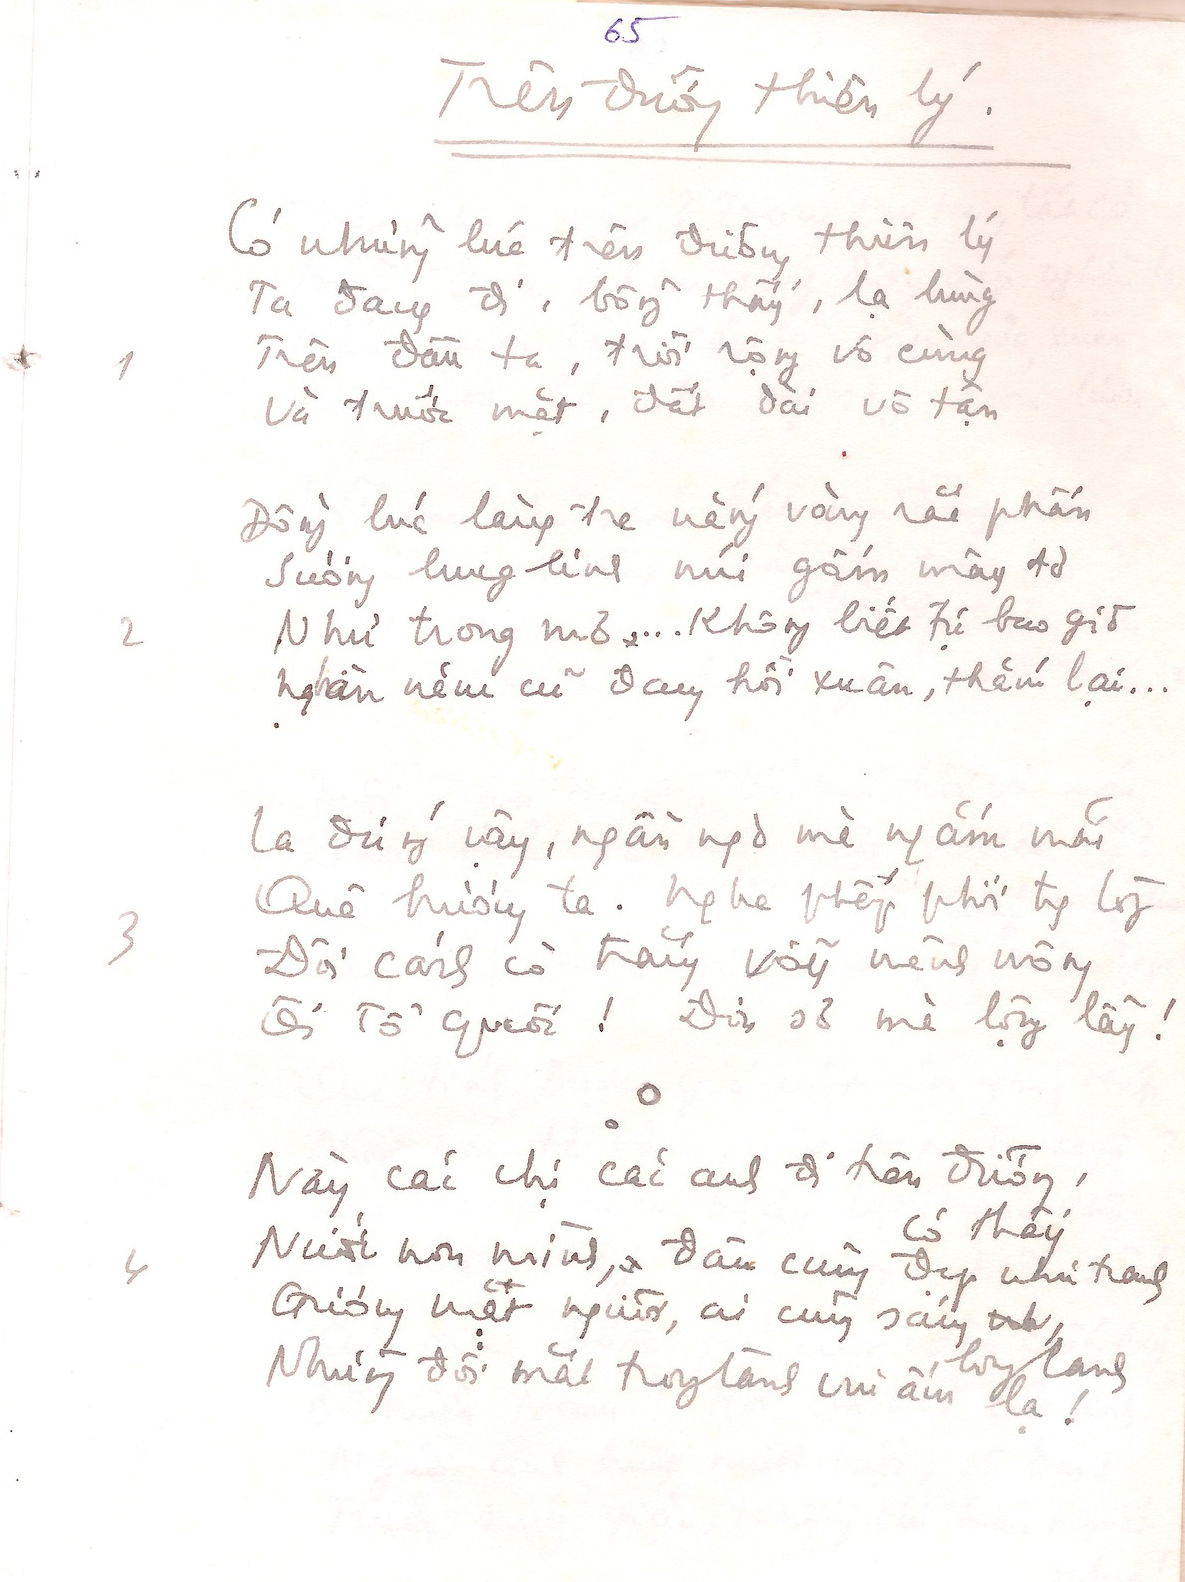 65
Trên đường thiên lý.
Có những lúc trên đường thiên lý
Ta đang đi, bỗng thấy, lạ lùng
1 Trên đầu ta, trời rộng vô cùng
Và trước mặt, đất dài vô tận
Đồng lúc làng tre nắng vàng rắc phấn
Sương lung linh núi gấm mây tơ
2 Như trong mơ.... Không biết tự bao giờ
Nghìn năm cũ đang hồi xuân, thắm lại...
Ta đứng vậy, ngẩn ngơ mà ngắm mãi
Quê hương ta. Nghe phấp phới
3 Đôi cánh cò trắng vẫy mênh mông
Ôi Tổ quốc! Đơn sơ mà lộng lẫy!
Này các chị các anh đi trên đường,
có thấy
4 Nước non mình, đâu cũng đẹp như tranh
Gương mặt người, ai cũng sáng
long lanh
Những đôi mắt trong lành vui ấm lạ!